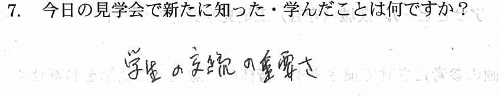 7. 今日の見学会で新たに知った・学んだことは何ですか？
学生の交流の重要さ